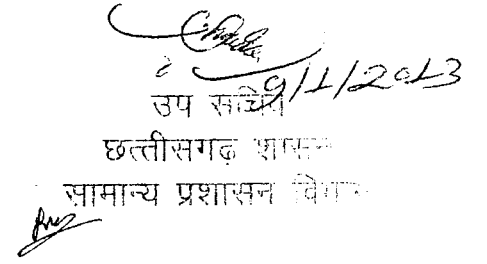 9/1/2013
उप सचिव
छत्तीसगढ़ शासन
सामान्य प्रशासन विभाग